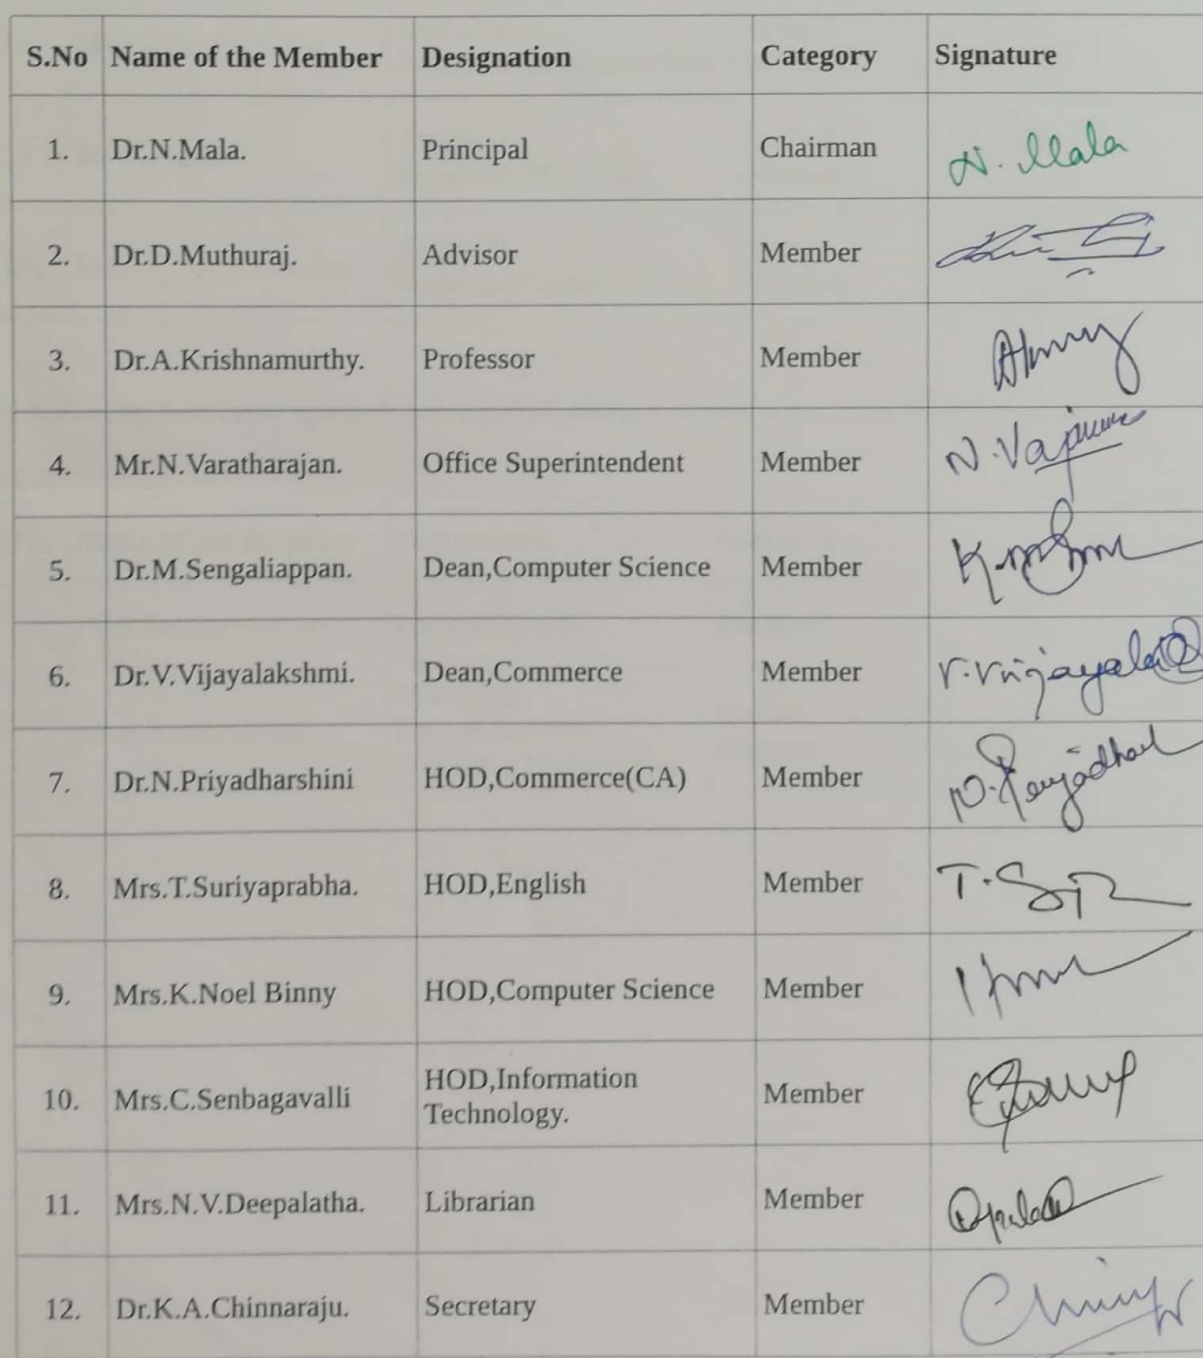 S.No Name of the Member Designation Category Signature
1. Dr.N.Mala. Principal Chairman N. Mala
2. Dr.D.Muthuraj. Advisor Member
3. Dr.A.Krishnamurthy. Professor Member
4. Mr.N.Varatharajan. Office Superintendent Member
5. Dr.M.Sengaliappan. Dean,Computer Science Member
6. Dr.V.Vijayalakshmi. Dean,Commerce Member
7. Dr.N.Priyadharshini HOD,Commerce(CA) Member
8. Mrs.T.Suriyaprabha. HOD,English Member
9. Mrs.K.Noel Binny HOD,Computer Science Member
10. Mrs.C.Senbagavalli HOD,Information Member
Technology.
11. Mrs.N.V.Deepalatha. Librarian Member
12. Dr.K.A.Chinnaraju. Secretary Member